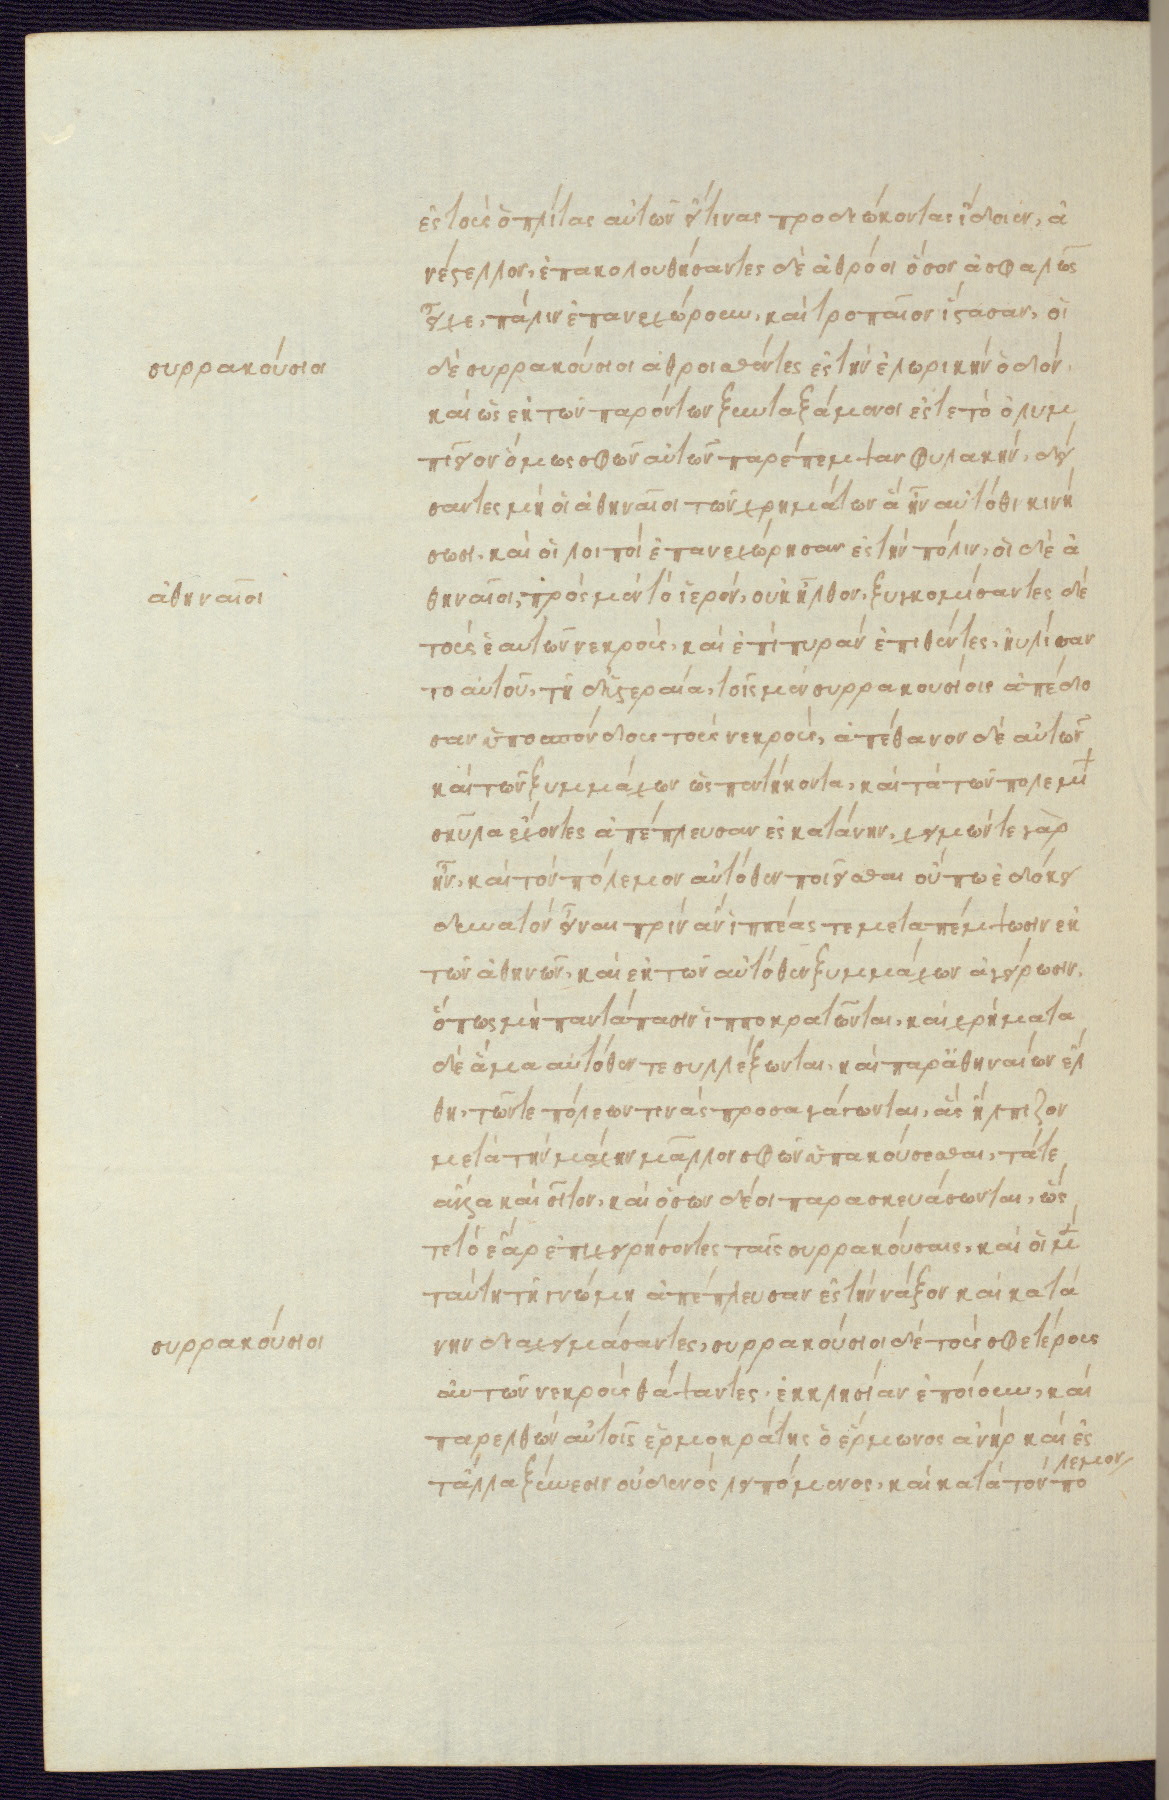 ἐς τοὺς ὁπλίτας αὐτῶν εἴ τινας προδιώκοντας ἴδοιεν, ἀ
νέστελλον, ἐπακολουθήσαντες δὲ ἀθρόοι ὅσον ἀσφαλῶς
εἶχε, πάλιν ἐπανεχώρουν, καὶ τροπαῖον ἵστασαν, οἱ
συρρακούσιοι
δὲ συρρακούσιοι ἀθροισθέντες ἐς τὴν ἑλωρικὴν ὁδόν,
καὶ ὡς ἐκ τῶν παρόντων ξυνταξάμενοι ἔς τε τὸ ὀλυμ
πιεῖον ὅμως σφῶν αὐτῶν παρέπεμψαν φυλακήν, δεί
σαντες μὴ οἱ ἀθηναῖοι τῶν χρημάτων ἃ ἦν αὐτόθι κινή
σωσι, καὶ οἱ λοιποὶ ἐπανεχώρησαν ἐς τὴν πόλιν, οἱ δὲ ἀ
ἀθηναῖοι
θηναῖοι, πρὸς μὲν τὸ ἱερόν, οὐκ ἦλθον, ξυγκομίσαντες δὲ
τοὺς ἑαυτῶν νεκρούς, καὶ ἐπὶ πυρὰν ἐπιθέντες, ηὐλίσαν
το αὐτοῦ, τῇ δ' ὑστεραία, τοῖς μὲν συρρακουσίοις ἀπέδο
σαν ὑποσπόνδους τοὺς νεκρούς, ἀπέθανον δὲ αὐτῶν
καὶ τῶν ξυμμάχων ὡς πεντήκοντα, καὶ τὰ τῶν πολεμί
σκῦλα ἔχοντες ἀπέπλευσαν ἐς κατάνην, χειμών τε γὰρ
ἦν, καὶ τὸν πόλεμον αὐτόθεν ποιεῖσθαι οὔπω ἐδόκει
δυνατὸν εἶναι πρὶν ἂν ἱππέας τε μεταπέμψωσιν ἐκ
τῶν ἀθηνῶν, καὶ ἐκ τῶν αὐτόθεν ξυμμάχων ἀγείρωσιν,
ὅπως μὴ παντάπασιν ἱπποκρατῶνται, καὶ χρήματα
δὲ ἅμα αὐτόθεν τε συλλέξωνται, καὶ παρ' ἀθηναίων ἔλ
θη, τῶν τε πόλεων τινὰς προσαγάγωνται, ἃς ἤλπιζον
μετὰ τὴν μάχην μᾶλλον σφῶν ὑπακούσεσθαι, τά τε
ἄλλα καὶ σῖτον, καὶ ὅσων δέοι παρασκευάσωνται, ὡς
τε τὸ ἔαρ ἐπιχειρήσοντες ταῖς συρρακούσαις, καὶ οἱ μὲν
ταύτη τῇ γνώμη ἀπέπλευσαν ἐς τὴν νάξον καὶ κατά
συρρακούσιοι
νην διαχειμάσαντες, συρρακούσιοι δὲ τοὺς σφετέρους
αὐτῶν νεκροὺς θάψαντες, ἐκκλησίαν ἐποίουν, καὶ
παρελθὼν αὐτοῖς ἑρμοκράτης ὁ ἕρμωνος ἀνὴρ καὶ ἐς
τἄλλα ξύνεσιν οὐδενὸς λειπόμενος, καὶ κατὰ τὸν πό
λεμον